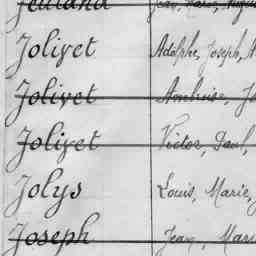 Jolivet Adolphe, Joseph,
Jolivet Ambroise,
Jolivet Victor, Paul,
Jolys Louis, Marie,
Joseph Jean,